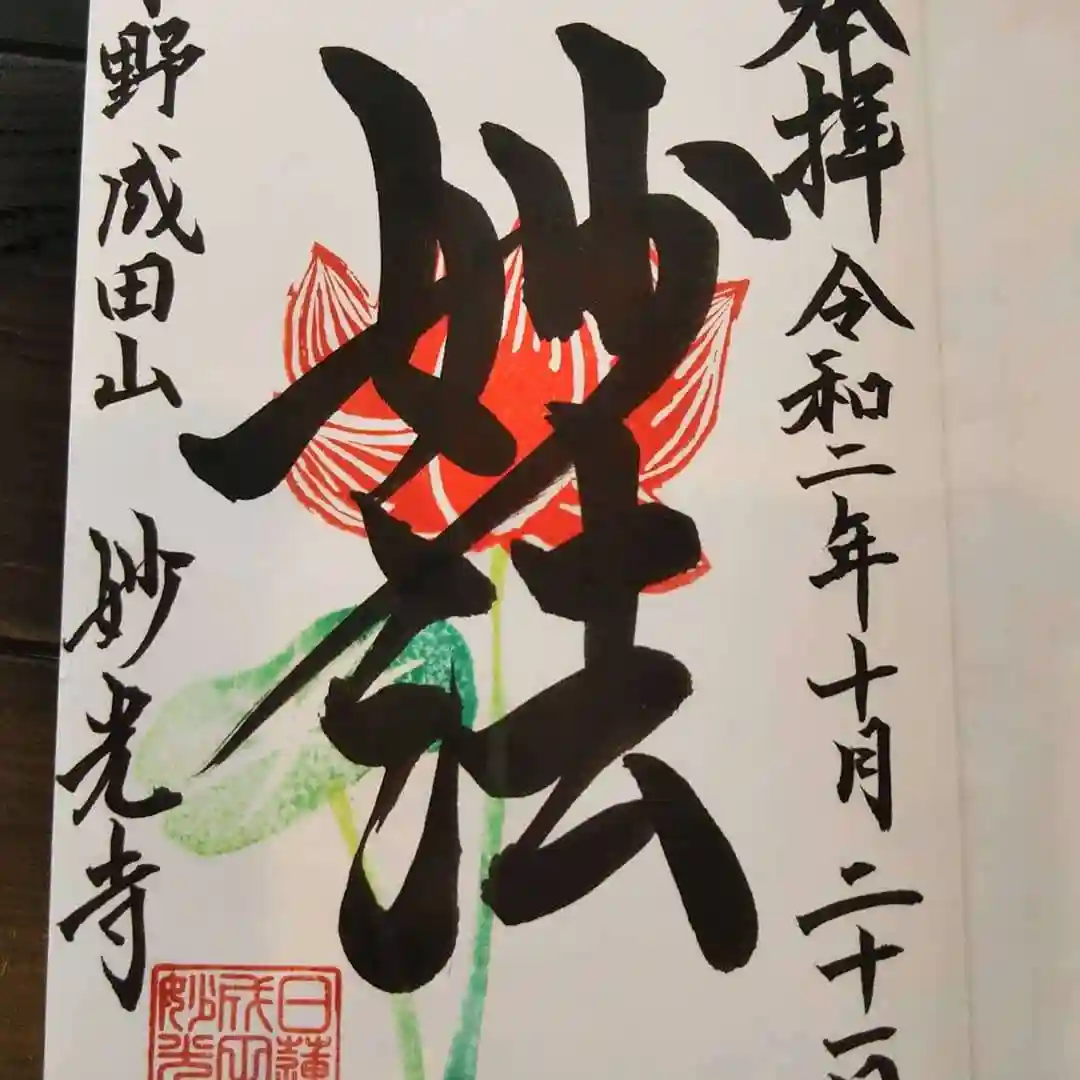 奉拝 令和二年十月二十一日
妙法
野成田山 妙光寺
日蓮
成田
妙光